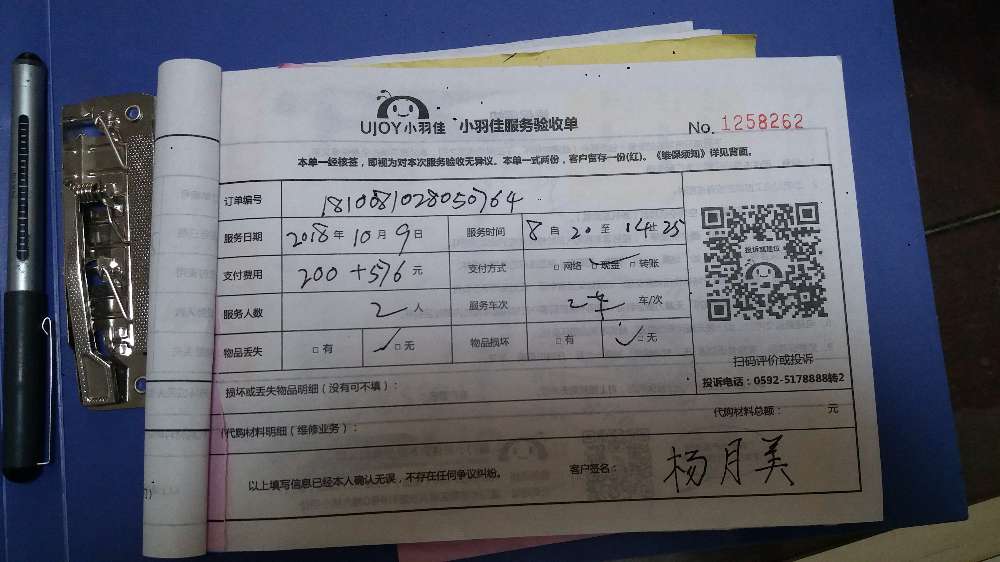 UJOY小羽佳 小羽佳服务验收单 No. 1258262
本单一经核签，即视为对本次服务验收无异议。本单一式两份，客户留存一份(红)。《维保须知》详见背面。
订单编号 1810081028050764
服务日期 2018年10月9日 服务时间 8自20至14止25
支付费用 200+576元 支付方式 □网络 □现金 □转账
服务人数 2人 服务车次 2车 车/次
物品丢失 □有 □无 物品损坏 □有 □无
投诉或建议
扫码评价或投诉
投诉电话：0592-5178888转2
损坏或丢失物品明细（没有可不填）：
代购材料明细（维修业务）： 代购材料总额： 元
以上填写信息已经本人确认无误，不存在任何争议纠纷。 客户签名： 杨月美